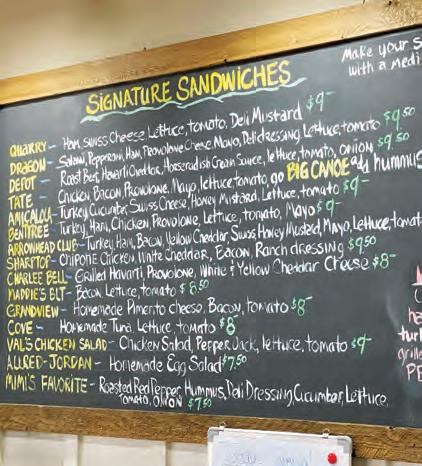 SIGNATURE SANDWICHES
Make your s
with a medi
QUARRY - Ham, Swiss Cheese, Lettuce, tomato, Deli Mustard $9-
DRAGON - Salami, Pepperoni, Ham, Provolone Cheese, Mayo, Deli dressing, Lettuce, tomato $9.50
DEPOT - Roast Beef, Havarti Cheddar, Horseradish Cream Sauce, lettuce, tomato, onion $9.50
TATE - Chicken, Bacon, Provolone, Mayo, lettuce, tomato go BIG CANOE add hummus
AMICALOLA - Turkey, Cucumber, Swiss Cheese, Honey Mustard, Lettuce, tomato $9-
BENTREE - Turkey, Ham, Chicken, Provolone, Lettuce, tomato, Mayo $9-
ARROWHEAD CLUB - Turkey, Ham, Bacon, Yellow Cheddar, Swiss, Honey Mustard, Mayo, Lettuce, tomat
SHARPTOP - Chipotle Chicken, White Cheddar, Bacon, Ranch dressing $9.50
CHARLEE BELL - Grilled Havarti, Provolone, White & Yellow Cheddar Cheese $8-
MADDIE'S BLT - Bacon, Lettuce, tomato $8.50
GRANDVIEW - Homemade Pimento cheese, Bacon, tomato $8-
COVE - Homemade Tuna, Lettuce, tomato $8-
VAL'S CHICKEN SALAD - Chicken Salad, Pepper Jack, lettuce, tomato $9-
ALLRED-JORDAN - Homemade Egg Salad $7.50
MIMI'S FAVORITE - Roasted Red Pepper Hummus, Deli Dressing, Cucumber, Lettuce,
Tomato, ONION $7.50
ha
turk
grille
PE